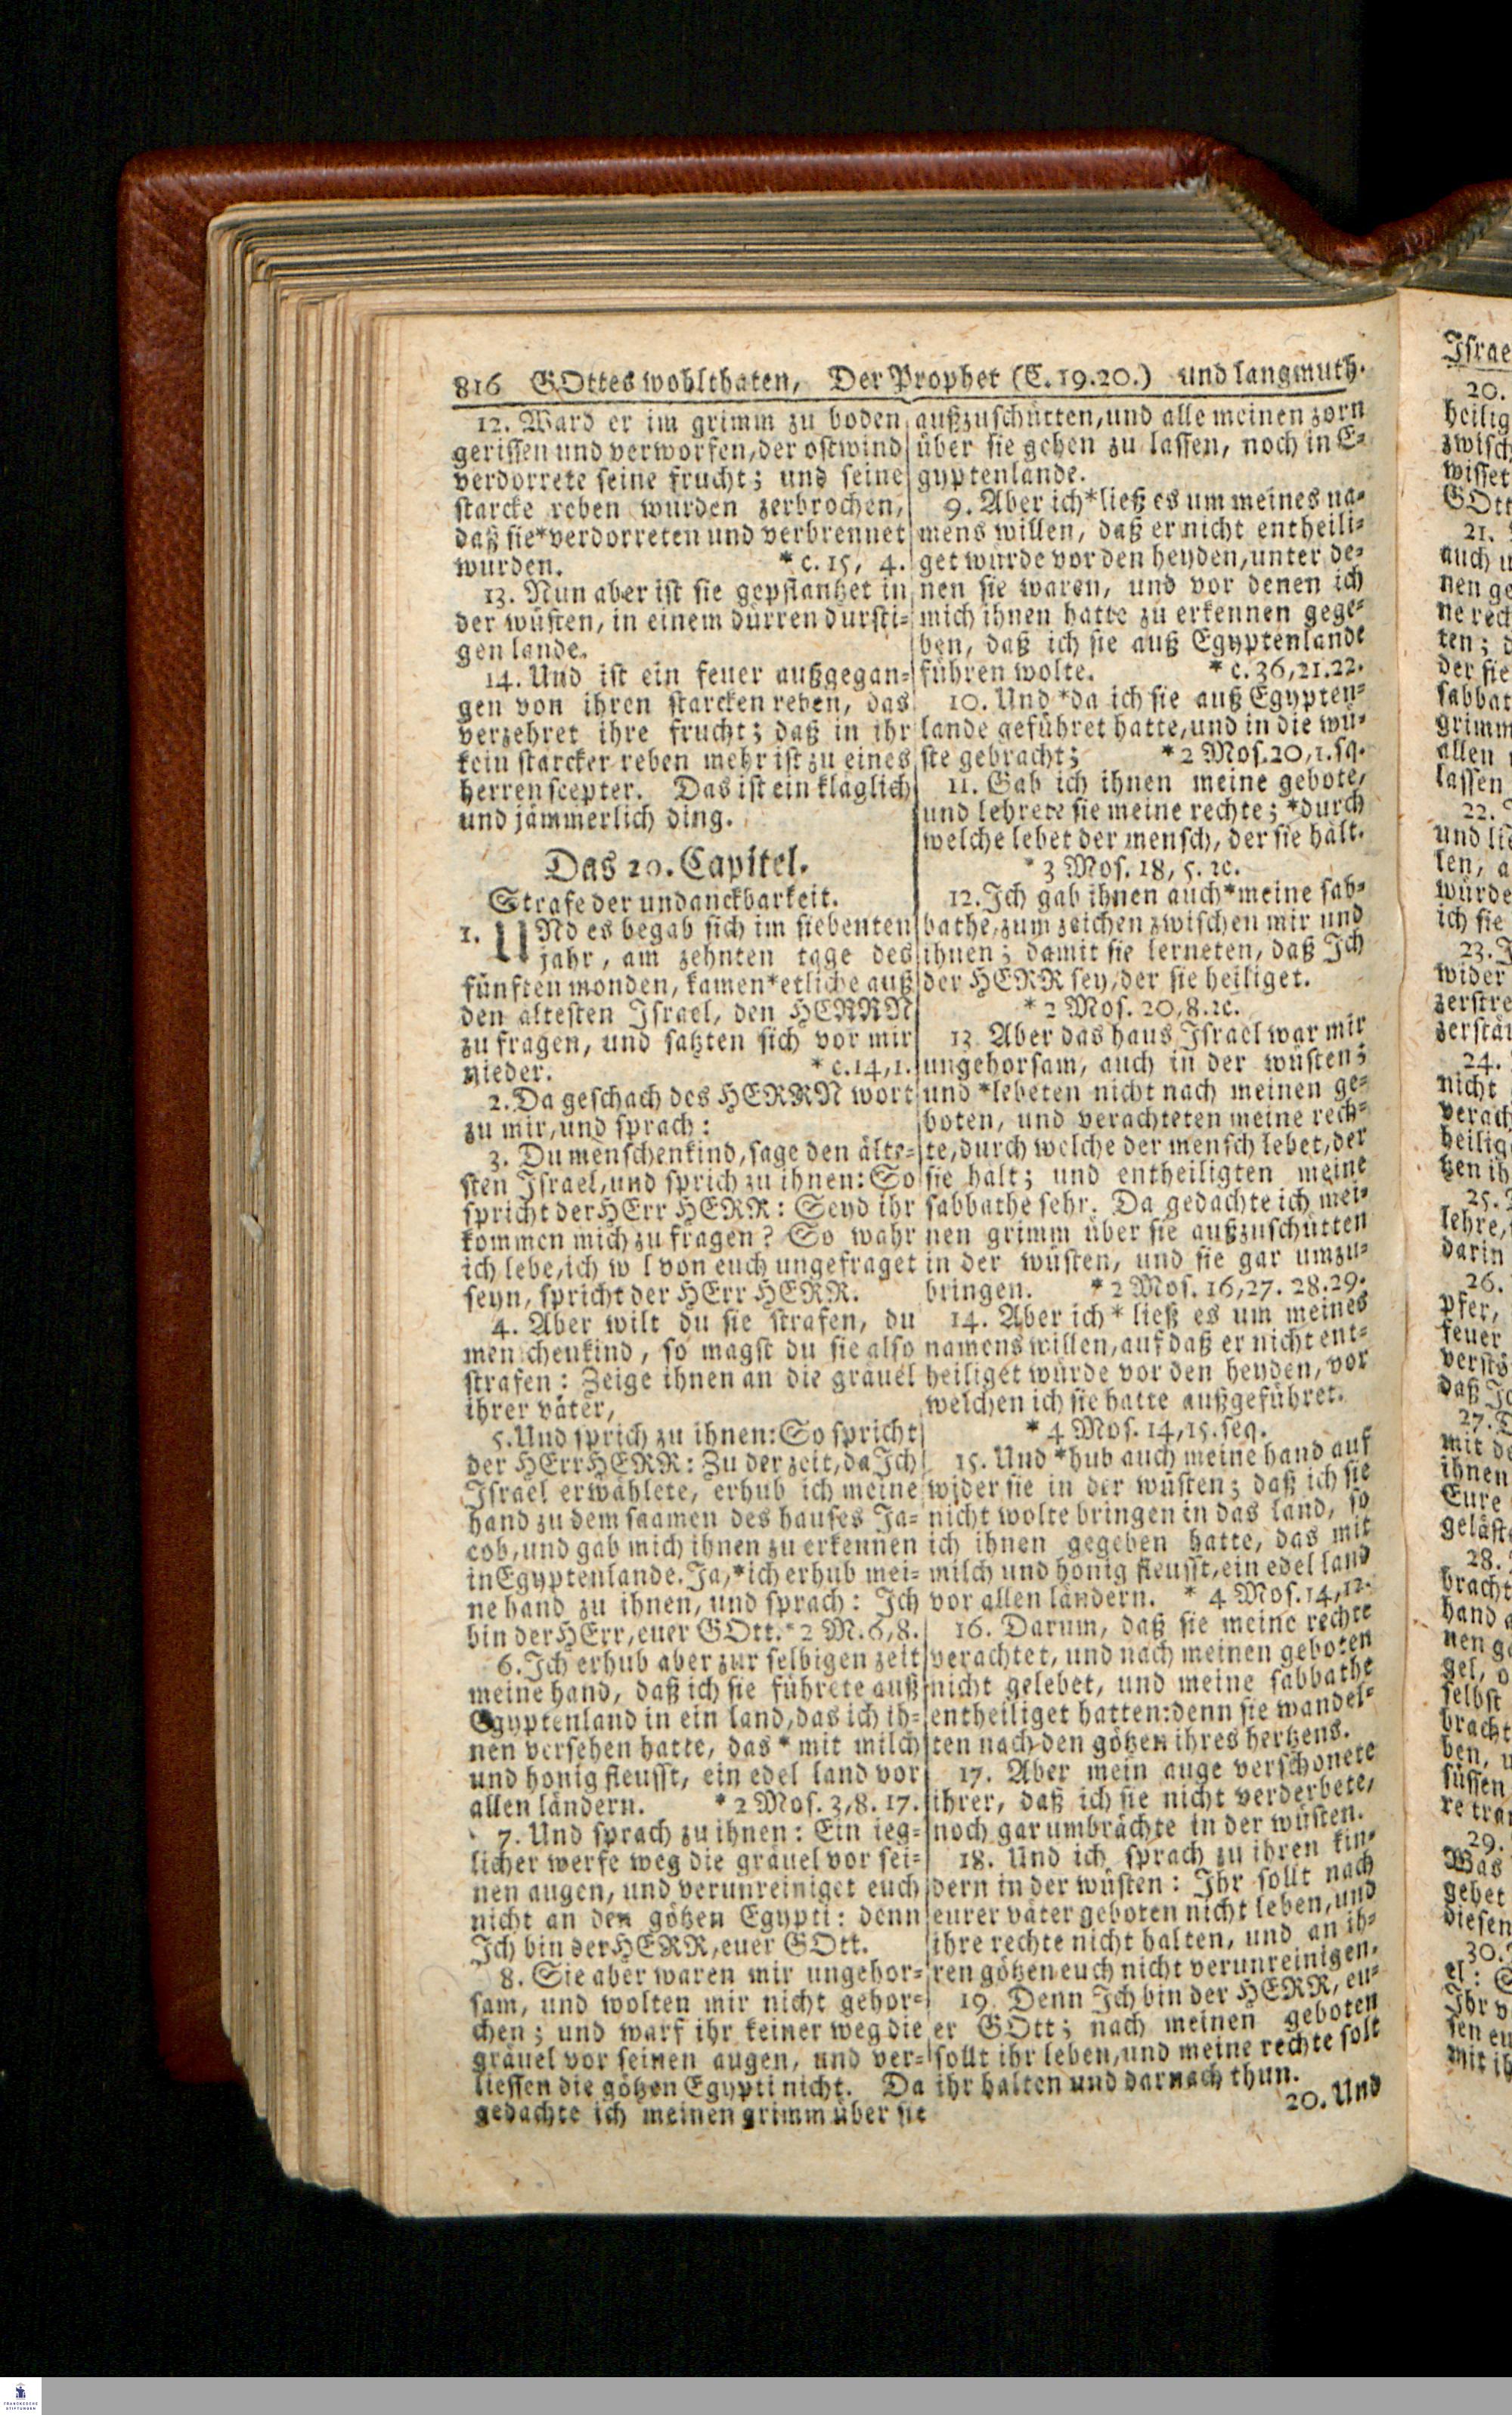 816 GOttes wohlthaten, Der Prophet (C. 19.20.) und langmuth.
12. Ward er im grimm zu boden
gerissen und verworfen, der ostwind
verdorrete seine frucht; und seine
starcke reben wurden zerbrochen,
daß sie*verdorreten und verbrennet
wurden. *c. 15, 4.
13. Nun aber ist sie gepflantzet in
der wüsten, in einem dürren dursti-
gen lande.
14. Und ist ein feuer außgegan-
gen von ihren starcken reben, das
verzehret ihre frucht; daß in ihr
kein starcker reben mehr ist zu eines
herren scepter. Das ist ein kläglich
und jämmerlich ding.
Das 20. Capitel.
Strafe der undanckbarkeit.
1. UNd es begab sich im siebenten
jahr, am zehnten tage des
fünften monden, kamen*etliche auß
den ältesten Israel, den HERRN
zu fragen, und satzten sich vor mir
nieder. *c.14,1.
2. Da geschach des HERRN wort
zu mir, und sprach:
3. Du menschenkind, sage den älte-
sten Israel, und sprich zu ihnen: So
spricht der HErr HERR: Seyd ihr
kommen mich zu fragen? So wahr
ich lebe, ich w l von euch ungefraget
seyn, spricht der HErr HERR.
4. Aber wilt du sie strafen, du
men chenkind, so magst du sie also
strafen: Zeige ihnen an die gräuel
ihrer väter,
5. Und sprich zu ihnen: So spricht
der HErr HERR: Zu der zeit, da Ich
Israel erwählete, erhub ich meine
hand zu dem saamen des hauses Ja-
cob, und gab mich ihnen zu erkennen
in Egyptenlande. Ja,*ich erhub mei-
ne hand zu ihnen, und sprach: Ich
bin der HErr, euer GOtt. *2 M. 6,8.
6. Ich erhub aber zur selbigen zeit
meine hand, daß ich sie führete auß
Egyptenland in ein land, das ich ih-
nen versehen hatte, das * mit milch
und honig fleusst, ein edel land vor
allen ländern. *2 Mos. 3,8. 17.
7. Und sprach zu ihnen: Ein ieg-
licher werfe weg die gräuel vor sei-
nen augen, und verunreiniget euch
nicht an den götzen Egypti: denn
Ich bin der HERR, euer GOtt.
8. Sie aber waren mir ungehor-
sam, und wolten mir nicht gehor-
chen; und warf ihr keiner weg die
gräuel vor seinen augen, und ver-
liessen die götzen Egypti nicht. Da
gedachte ich meinen grimm über sie
außzuschütten, und alle meinen zorn
über sie gehen zu lassen, noch in E-
gyptenlande.
9. Aber ich*ließ es um meines na-
mens willen, daß er nicht entheili-
get würde vor den heyden, unter de-
nen sie waren, und vor denen ich
mich ihnen hatte zu erkennen gege-
ben, daß ich sie auß Egyptenlande
führen wolte. *c. 36,21.22.
10. Und *da ich sie auß Egypten-
lande geführet hatte, und in die wü-
ste gebracht; *2 Mos.20,1.sq.
11. Gab ich ihnen meine gebote,
und lehrete sie meine rechte; *durch
welche lebet der mensch, der sie hält.
*3 Mos. 18, 5. ꝛc.
12. Ich gab ihnen auch*meine sab-
bathe, zum zeichen zwischen mir und
ihnen; damit sie lerneten, daß Ich
der HERR sey, der sie heiliget.
*2 Mos. 20,8.ꝛc.
13 Aber das haus Israel war mir
ungehorsam, auch in der wüsten;
und *lebeten nicht nach meinen ge-
boten, und verachteten meine rech-
te, durch welche der mensch lebet, der
sie hält; und entheiligten meine
sabbathe sehr. Da gedachte ich mei-
nen grimm über sie außzuschütten
in der wüsten, und sie gar umzu-
bringen. *2 Mos. 16,27. 28.29.
14. Aber ich * ließ es um meines
namens willen, auf daß er nicht ent-
heiliget würde vor den heyden, vor
welchen ich sie hatte außgeführet.
*4 Mos. 14,15.seq.
15. Und *hub auch meine hand auf
wider sie in der wüsten; daß ich sie
nicht wolte bringen in das land, so
ich ihnen gegeben hatte, das mit
milch und honig fleusst, ein edel land
vor allen ländern. * 4 Mos.14,12.
16. Darum, daß sie meine rechte
verachtet, und nach meinen geboten
nicht gelebet, und meine sabbathe
entheiliget hatten: denn sie wandel-
ten nach den götzen ihres hertzens.
17. Aber mein auge verschonete
ihrer, daß ich sie nicht verderbete,
noch gar umbrächte in der wüsten.
18. Und ich sprach zu ihren kin-
dern in der wüsten: Ihr sollt nach
eurer väter geboten nicht leben, und
ihre rechte nicht halten, und an ih-
ren götzen euch nicht verunreinigen.
19. Denn Ich bin der HERR, eu-
er GOtt; nach meinen geboten
sollt ihr leben, und meine rechte solt
ihr halten und darnach thun.
20. Und